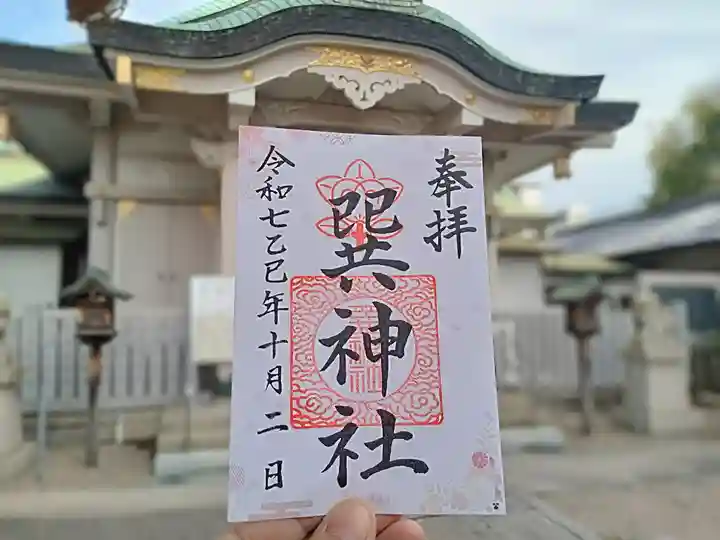 奉拝
巽神社
令和七乙巳年十月二日